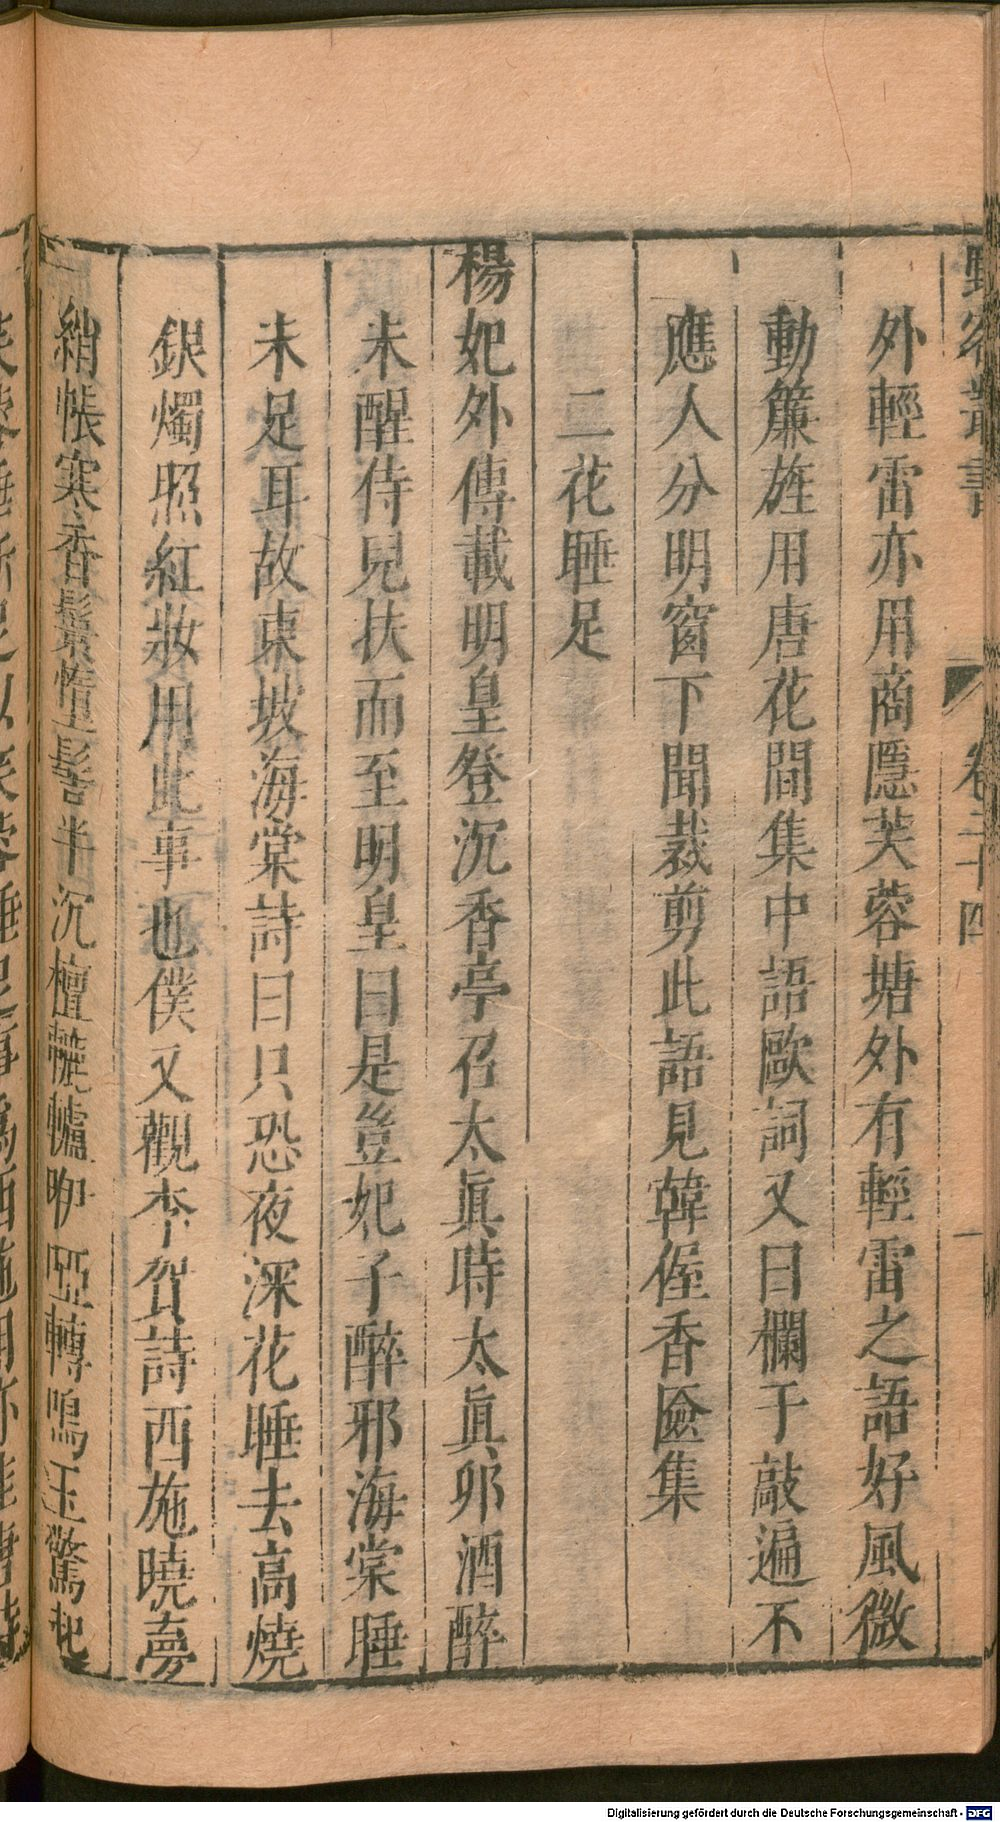 野客叢書 卷二十四 一
外輕雷亦用商隱芙蓉塘外有輕雷之語好風微
動簾旌用唐花間集中語歐詞又曰欄干敲遍不
應人分明窗下聞裁剪此語見韓偓香匳集
二花睡足
楊妃外傳載明皇登沉香亭召太眞時太眞卯酒醉
未醒侍兒扶而至明皇曰是豈妃子醉邪海棠睡
未足耳故東坡海棠詩曰只恐夜深花睡去高燒
銀燭照紅妝用此事也僕又觀李賀詩西施曉夢
綃帳寒香鬟墮髻半沉檀轆轤咿啞轉鳴玉驚起
Digitalisierung gefördert durch die Deutsche Forschungsgemeinschaft - DFG